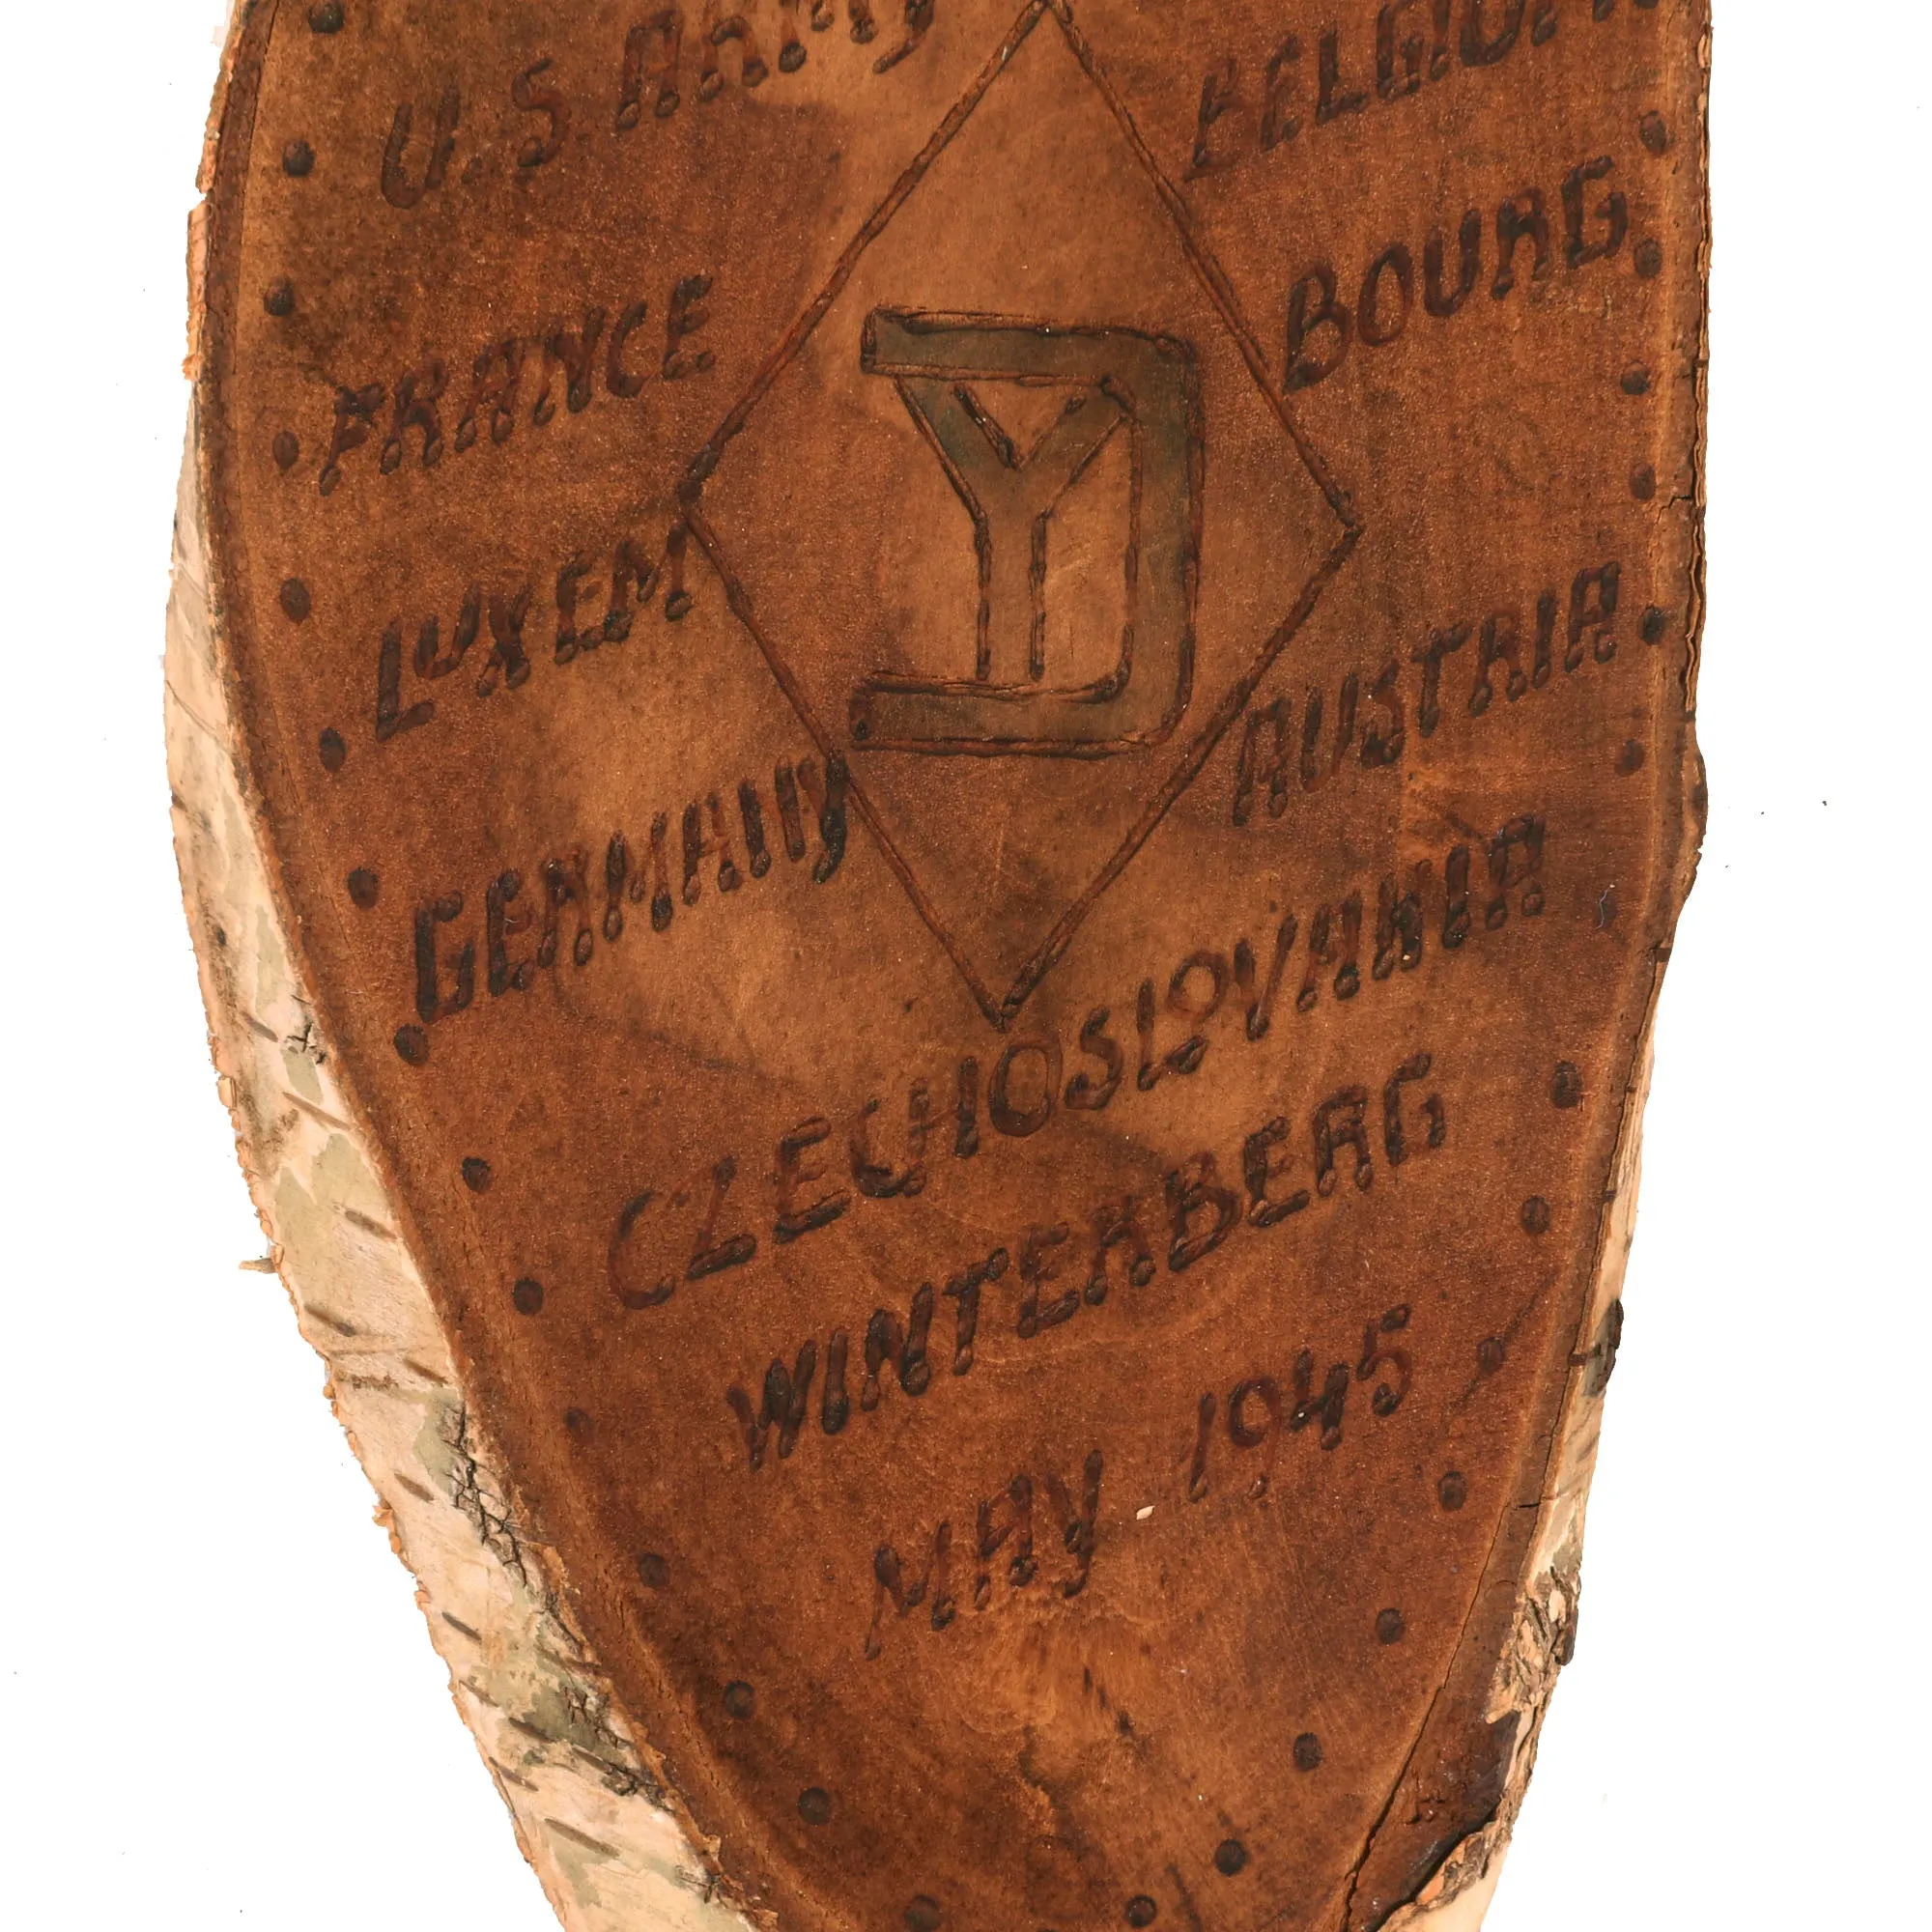 U.S. ARMY
BELGIUM
FRANCE
LUXEM
BOURG
YD
GERMANY
AUSTRIA
CZECHOSLOVAKIA
WINTERBERG
MAY 1945